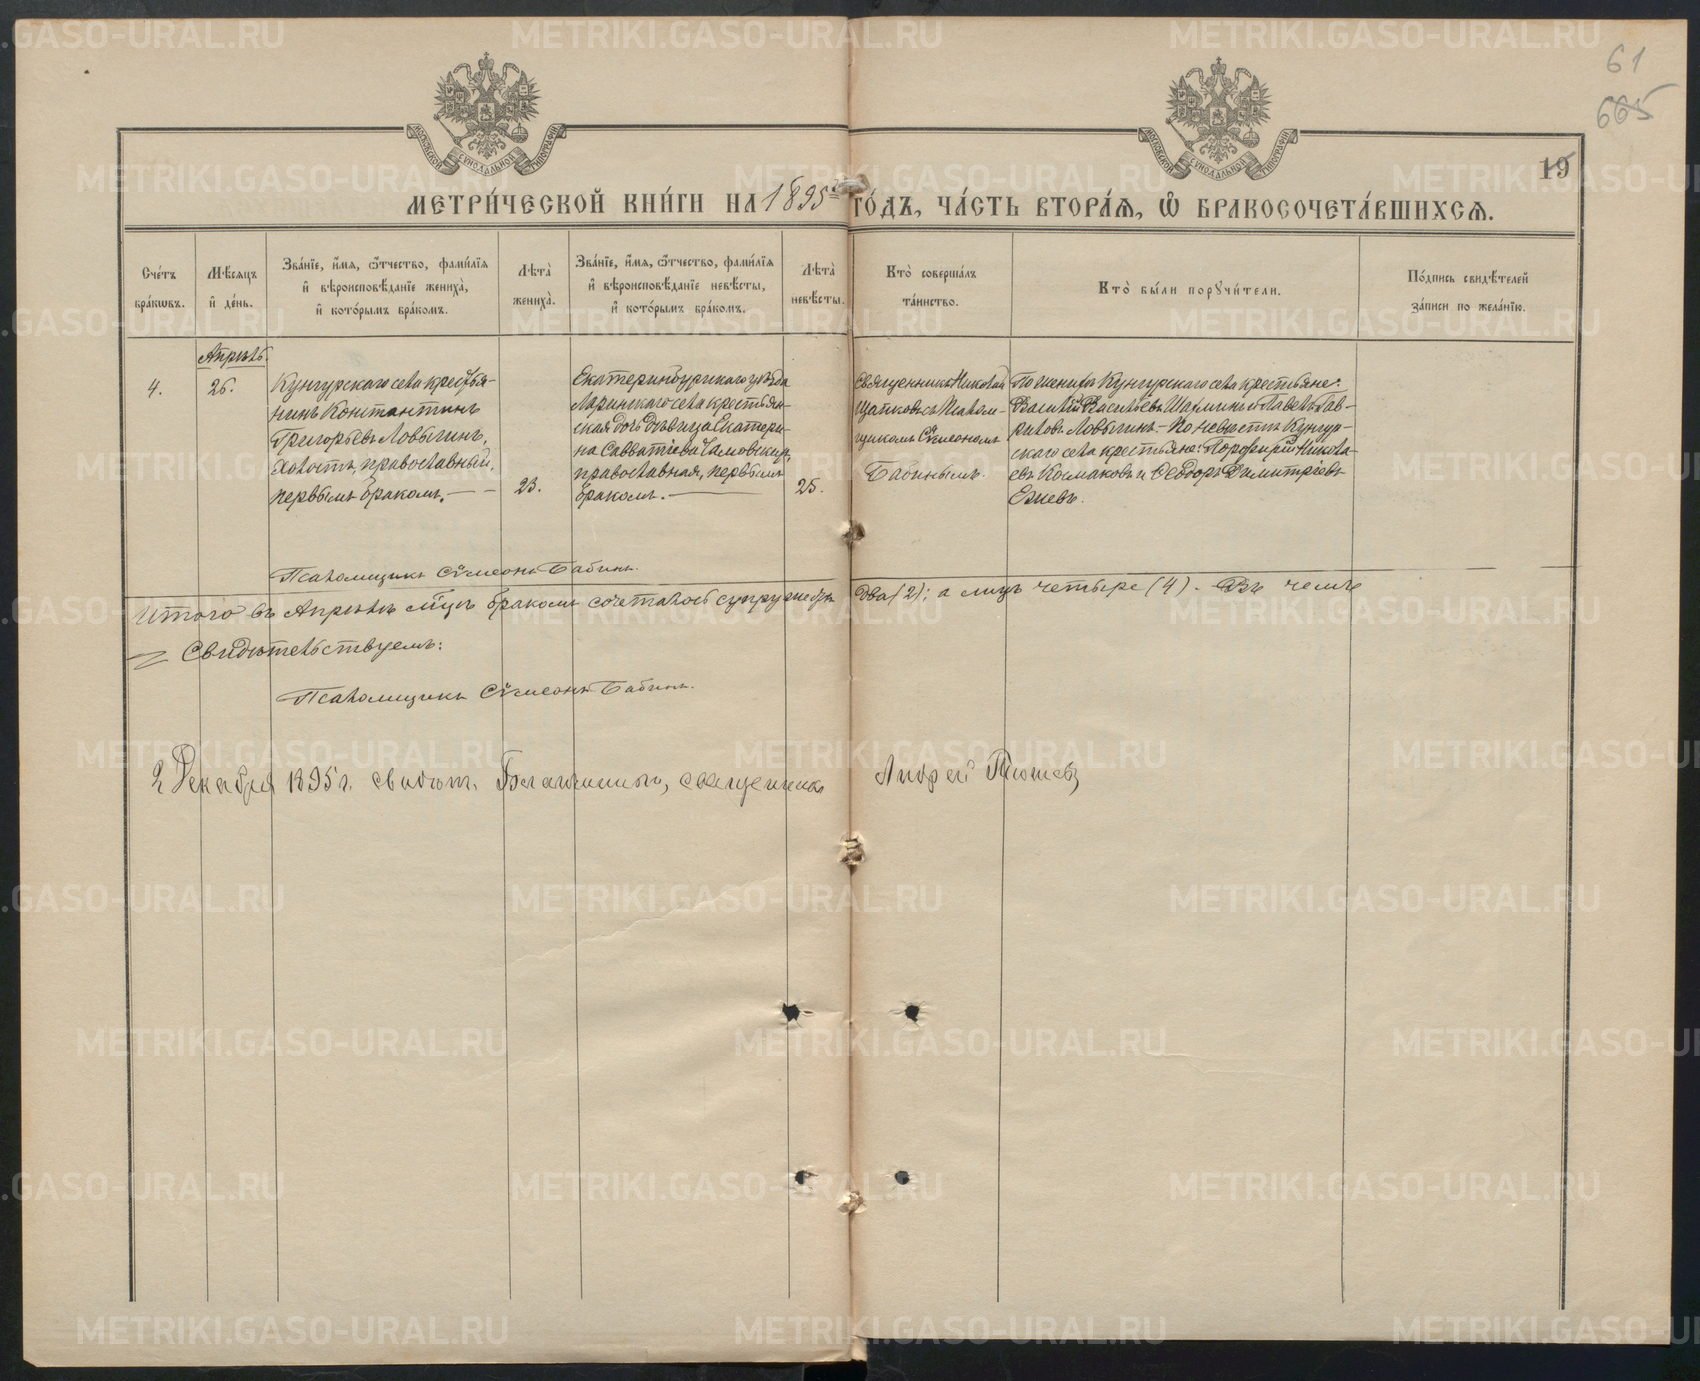 61
605
19
МОСКОВСКОЙ СѴНОДАЛЬНОЙ ТИПОГРАФІИ
МОСКОВСКОЙ СѴНОДАЛЬНОЙ ТИПОГРАФІИ
МЕТРИ́ЧЕСКОЙ КНИ́ГИ НА 1895 ГО́ДЪ, ЧА́СТЬ ВТОРА́Я, Ѿ БРАКОСОЧЕТА́ВШИХСЯ.
Сче́тъ бра́кѡвъ.
Мѣ́сяцъ и҆ де́нь.
Зва́нїе, и҆́мя, ѻ҆́тчество, фами́лїя и҆ вѣроисповѣ́данїе жениха̀, и҆ кото́рымъ бра́комъ.
Лѣ́та жениха̀.
Зва́нїе, и҆́мя, ѻ҆́тчество, фами́лїя и҆ вѣроисповѣ́данїе невѣ́сты, и҆ кото́рымъ бра́комъ.
Лѣ́та невѣ́сты.
Кто̀ соверша́лъ та́инство.
Кто̀ бы́ли порꙋчи́тели.
По́дпись свидѣ́телей за́писи по жела́нїю.
4.
Апрѣль
26.
Кунгурскаго села крестья-
нинъ Константинъ
Григорьевъ Ловыгинъ,
холостъ, православный,
первымъ бракомъ.
23.
Екатеринбургскаго уѣзда
Ларинскаго села крестьян-
ская дочь дѣвица Екатери-
на Савватіева
православная, первымъ
бракомъ.
25.
Священникъ Николай
Щапковъ съ Псалом-
щикомъ Сѵмеономъ
Бабинымъ.
По женихѣ Кунгурскаго села крестьяне:
Василій Васильевъ и Павелъ Гав-
риловъ Ловыгинъ. По невѣстѣ Кунгур-
скаго села крестьяне: Порфирій Никола-
евъ Колмаковъ и Ѳедоръ Димитріевъ
Ежевъ.
Псаломщикъ Сѵмеонъ Бабинъ.
Итого въ Апрѣлѣ мѣсц бракомъ сочеталось супружебръ два (2); а лицъ четыре (4). Въ чемъ
Свидѣтельствуемъ:
Псаломщикъ Сѵмеонъ Бабинъ.
2 Декабря 1895 г. свидѣт. Благочинный, священникъ Андрей
METRIKI.GASO-URAL.RU